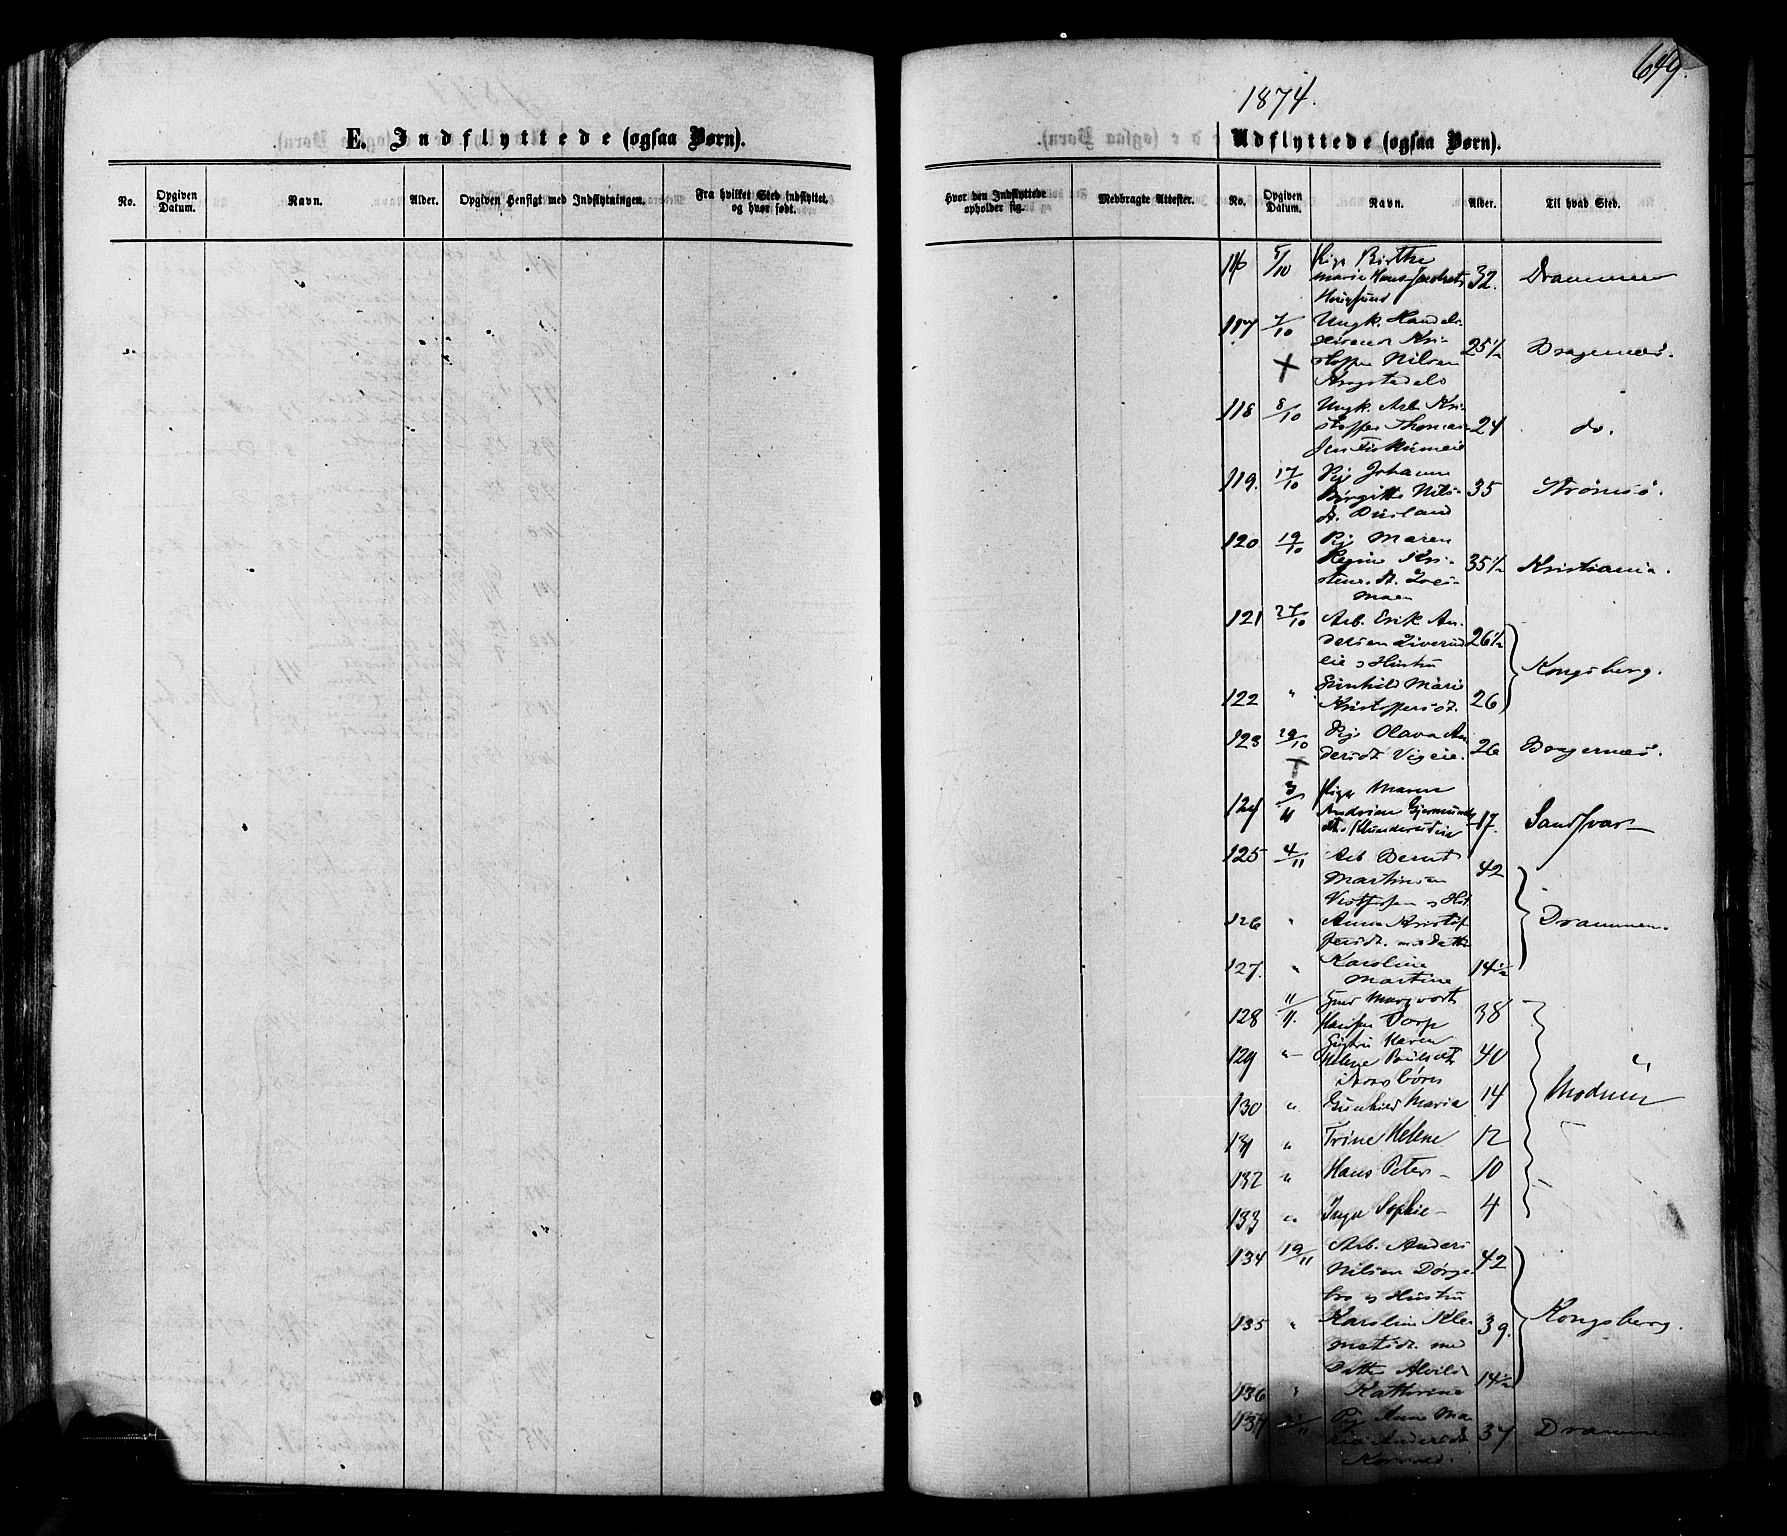 649.
1874.
E. Indflyttede (ogsaa Børn).
Udflyttede (ogsaa Børn).
No. Opgiven Datum. Navn. Alder. Opgiven Hensigt med Indflytningen. Fra hvilket Sted indflyttet, og hvor født.
Hvor den Indflyttede opholder sig. Medbragte Attester. No. Opgiven Datum. Navn. Alder. Til hvad Sted.
116 5/10 Pige Birthe
Marie Hans 32. Drammen
117 7/10 Ungk. Handels-
Kri- 25½ Bragernæs.
stoffer Nilsen
118 8/10 Ungk. Arb. Kri-
stoffer Thomas- 24 do.
sen Fiskumeie
119. 17/10 Pig Johanne
Birgitte Nils- 35 Strømsö.
dt.
120 19/10 Pig Maren
Regine Kri- 35½ Kristiania.
stens. dt.
121 27/10 Arb. Erik An-
dersen 26½
eie & Hustru Kongsberg.
122 " Gunhild Marie
Kristoffersdt. 26
123 29/10 Pige Olava An
dersdt. Vigeie. 26 Bragernæs.
124 3/11 Pige Maren
Andrine Gjermunds 17. Sandsvær
125 4/11 Arb Bernt
Martinsen 42
Vestfossen & Hst.
126 " Anna Kristof Drammen.
fersdt. med Datter
127. " Karoline 14½
Martine
128 11/11. 38
Hansen Dorp
129 " Hustru Karen
Helene Paulsdt. 40
Børn
130 " Gunhild Maria 14 Modum
131 " Trine Helene 12
132 " Hans Peter 10
133 " Inga Sophie 4
134 19/11 Arb. Anders
Nilsen 42
& Hustru
135 " Karoline Kle 39. Kongsberg.
metsdt. med
Datter Alvilde 14½
136 " Kathrine
137 Pig Anne Ma
rie Andersdt 37 Drammen